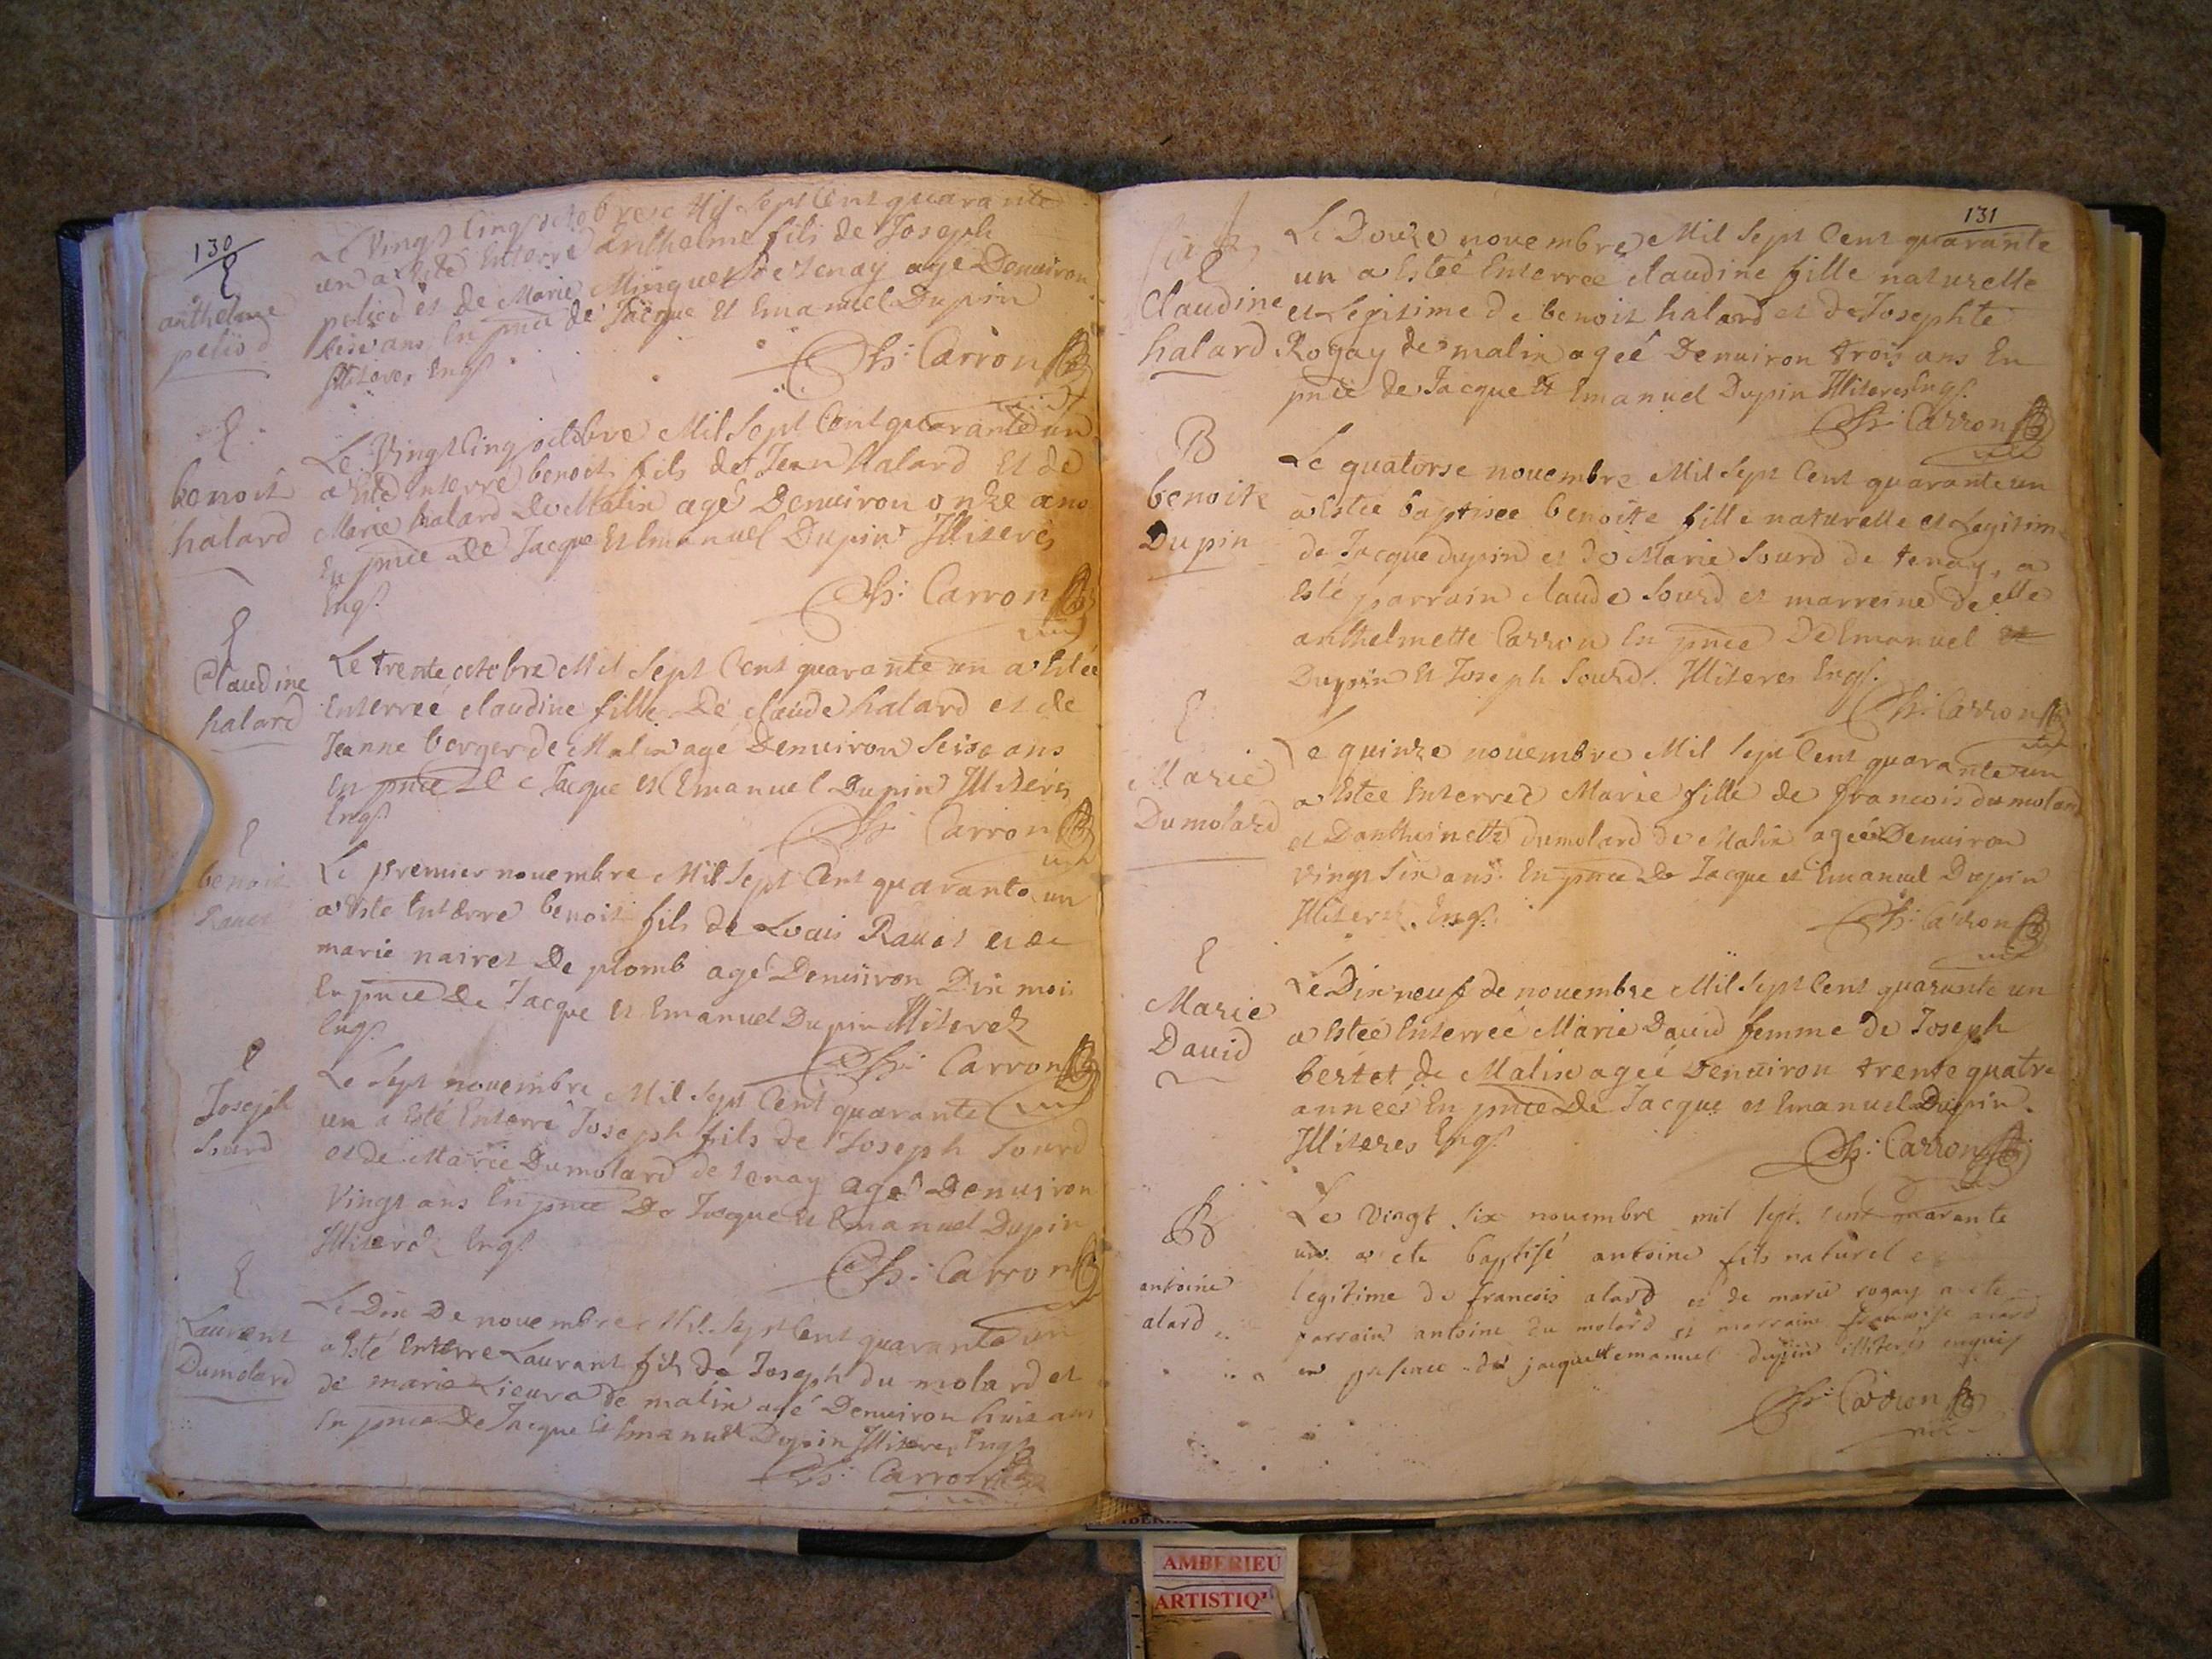 130
anthelme
peliod
Le Vingt Cinq octobre Mil Sept Cent quarante
un a Esté Enterré anthelme fils de Joseph
peliod et de Marie Minguet de tenay agé Denuiron
seise ans En pnce de Jacque Et Emanuel Dupin
Illiteres Enqs
Ph: Carron
benoit
halard
Le Vingt Cinq octobre Mil Sept Cent quarante un
a Esté Enterré benoit fils de Jean halard Et de
Marie halard De Malin agé Denuiron onze ans
En pnce De Jacque Et Emanuel Dupin Illiteres
Enqs.
Ph: Carron
Claudine
halard
Le trente octobre Mil Sept Cent quarante un a Estée
Enterreé claudine fille De claude halard et de
Jeanne berger de Malin agé Denuiron Seise ans
En pnce De Jacque et Emanuel Dupin Illiteres
Enqs
Ph: Carron
benoit
Rauet
Le premier nouembre Mil Sept Cent quarante un
a Esté Enterré benoit fils de Louis Rauet et de
marie nairet De plomb agé Denuiron Dix mois
En pnce De Jacque Et Emanuel Dupin Illiteres
Enqs.
Ph: Carron
Joseph
Sourd
Le Sept nouembre Mil Sept Cent quarante
un a Esté Enterré Joseph fils de Joseph Sourd
et de Marie Dumolard de tenay agé Denuiron
Vingt ans En pnce De Jacque Et Emanuel Dupin
Illiteres Enqs
Ph: Carron
Laurent
Dumolard
Le Dix De nouembre Mil Sept Cent quarante un
a Esté Enterré Laurant fils de Joseph du molard et
de marie Lieura de malin agé Denuiron huit ans
En pnce De Jacque Et Emanuel Dupin Illiteres Enqs
Ph: Carron
131
Claudine
halard
Le Douze nouembre Mil Sept Cent quarante
un a Estée Enterrée claudine fille naturelle
et Legitime de benoit halard et de Josephte
Rogay de malin ageé Denuiron trois ans En
pnce de Jacque Et Emanuel Dupin Illiteres Enqs.
Ph: Carron
B
benoite
Dupin
Le quatorse nouembre Mil Sept Cent quarante un
a Estée baptisee benoite fille naturelle et Legitim
de Jacque dupin et de Marie Sourd de tenay, a
Esté parrain claude Sourd et marreine de elle
anthelmette Carron En pnce De Emanuel et
Dupin Et Joseph Sourd. Illiteres Enqs.
Ph: Carron
Marie
Dumolard
Le quinze nouembre Mil Sept Cent quarante un
a Estée Enterreé Marie fille de francois dumolard
et Danthoinette dumolard de Malin ageé Denuiron
Vingt Six ans. En pnce De Jacque et Emanuel Dupin
Illiteres. Enqs.
Ph: Carron
Marie
Dauid
Le Dix neuf de nouembre Mil Sept Cent quarante un
a Estée Enterreé Marie Dauid femme de Joseph
bertet de Malin ageé Denuiron trente quatre
anneés En pnce De Jacque et Emanuel Dupin.
Illiteres Enqs
Ph: Carron
B
antoine
alard
Le Vingt Six nouembre mil Sept cent quarante
un a ete baptisé antoine fils naturel et
legitime de francois alard et de marie rogay a ete
parrain antoine du molard et marraine francoise alard
en presence de jacque et emanuel dupin illiteres enquis
Ph: Carron
AMBERIEU
ARTISTIQ'